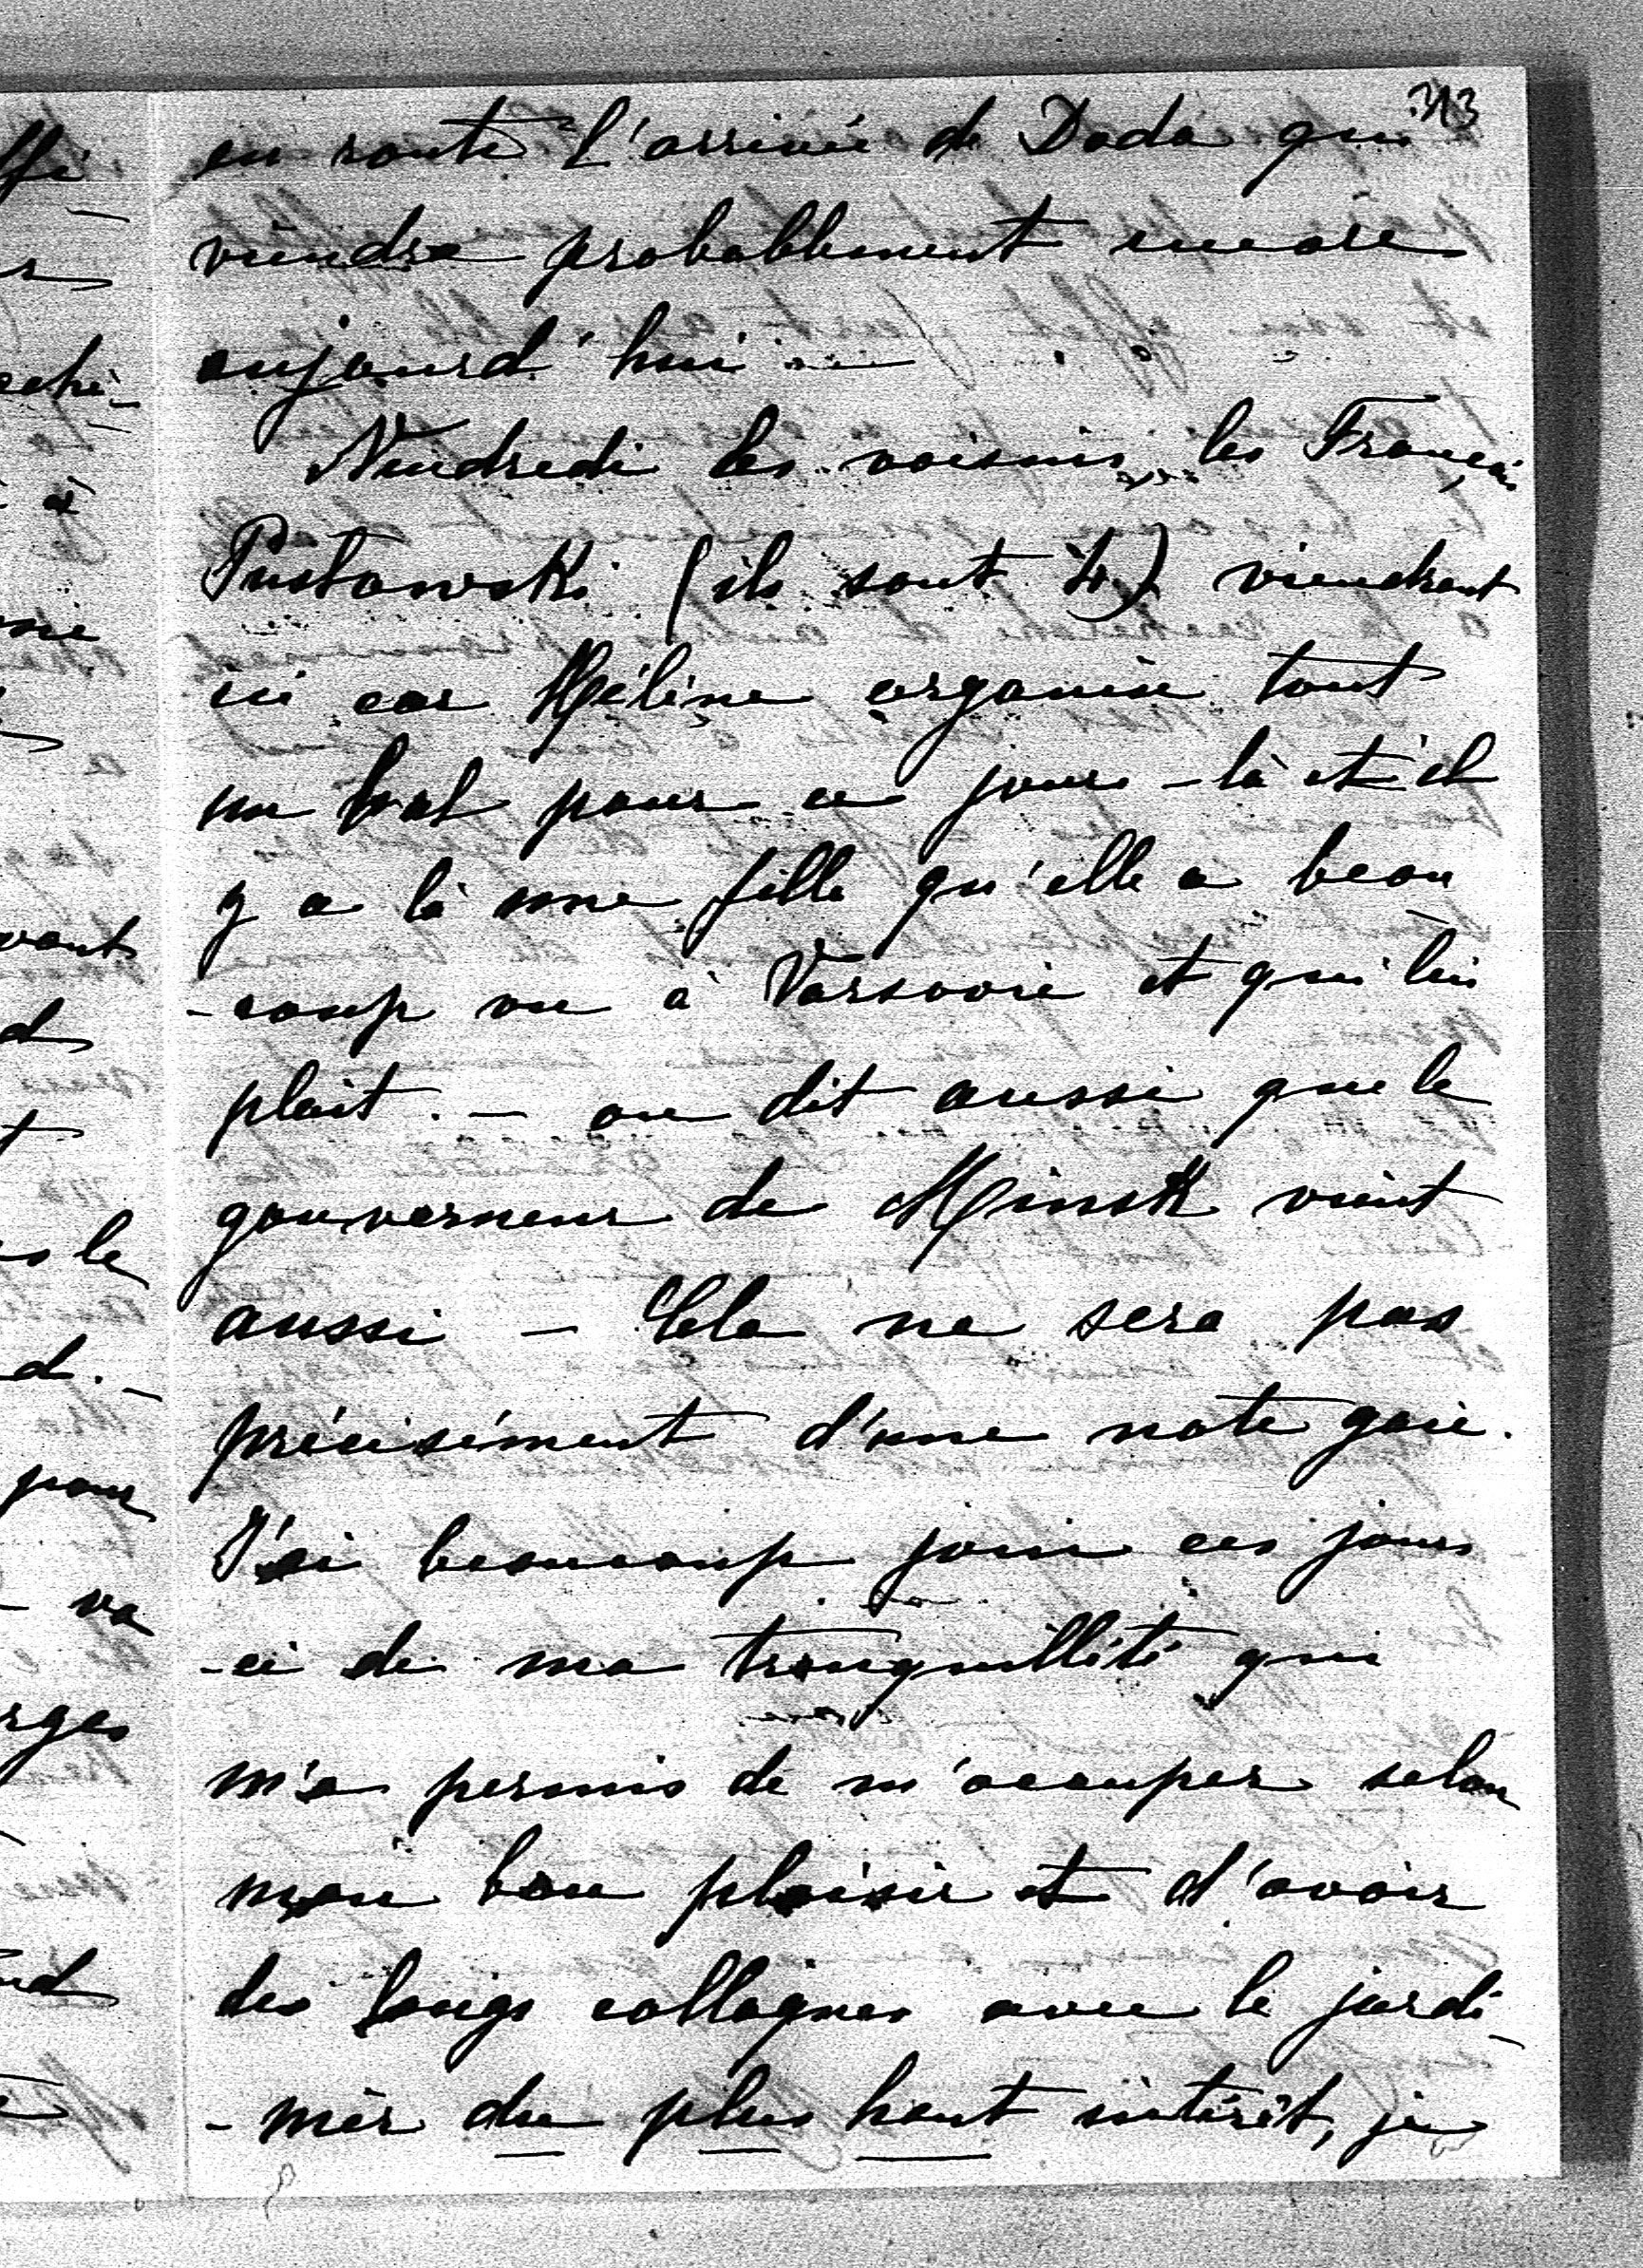 313
en route l'arrivée de Doda qui
viendra probablement encore
aujourd'hui. —
Vendredi les voisins, les Français
Pustowski (ils sont 4) viendront
ici car Hélène organise tout
un bal pour ce jour-là et il
y a là une fille qu'elle a beau
-coup vu à Varsovie et qui lui
plait. — on dit aussi que le
gouverneur de Minsk vient
aussi — Cela ne sera pas
précisément d'une note gaie.
J'ai beaucoup joui ces jours
-ci de ma tranquillité qui
m'a permis de m'occuper selon
mon bon plaisir et d'avoir
des longs colloques avec le jardi-
-nier du plus haut intérêt, je